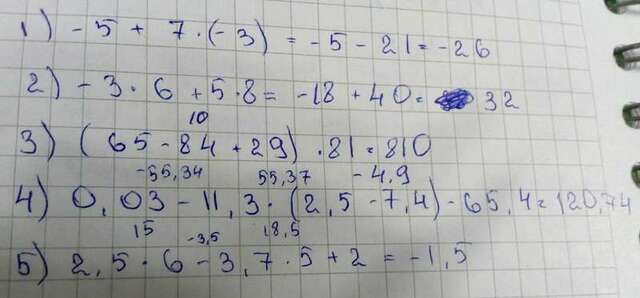 1) - 5 + 7 · (- 3) = - 5 - 21 = - 26
2) - 3 · 6 + 5 · 8 = - 18 + 40 = 32
10
3) ( 65 - 84 + 29) · 81 = 810
-55,34 55,37 - 4.9
4) 0,03 - 11,3 · (2,5 - 7,4) - 65,4 = 120,74
15 -3,5 18,5
5) 2,5 · 6 - 3,7 · 5 + 2 = - 1,5